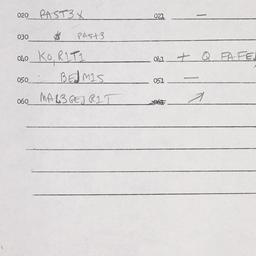 020 PAST3X 021 —
030 PAST3
040 KO,RIT1 041 + Q FA-FE
050 BEJMIS 051 —
060 MAL3GEJRIT